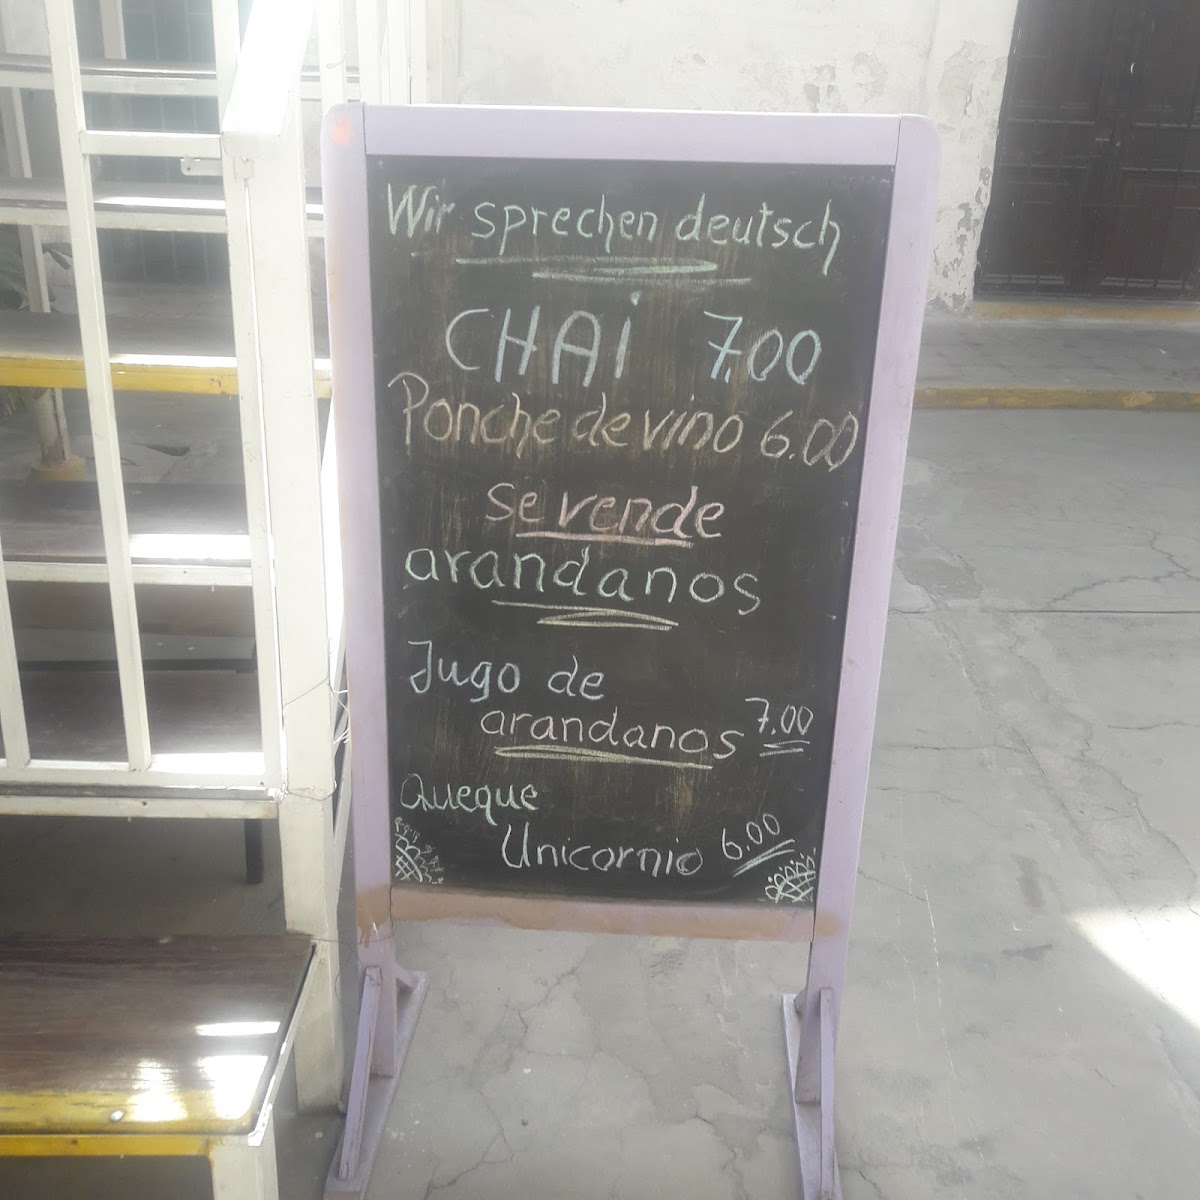 Wir sprechen deutsch
CHAi 7.00
Ponche de vino 6.00
se vende
arandanos
Jugo de
arandanos 7.00
Queque
Unicornio 6.00